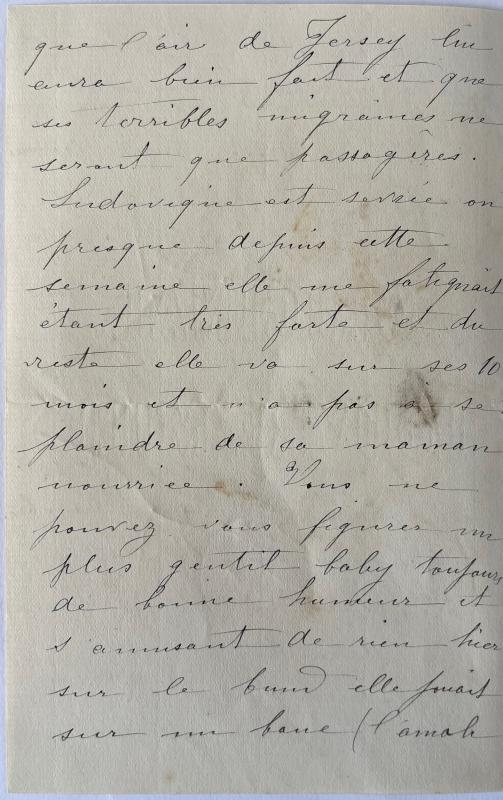 que l'air de Jersey lui
aura bien fait et que
ses terribles migraines ne
seront que passagères.
Ludovique est sevrée ou
presque depuis cette
semaine elle me fatiguait
étant très forte et du
reste elle va sur ses 10
mois et n'a pas à se
plaindre de sa maman
nourrice. Vous ne
pouvez vous figurer un
plus gentil baby toujours
de bonne humeur et
s'amusant de rien hier
sur le bund elle jouait
sur un banc (l'amah